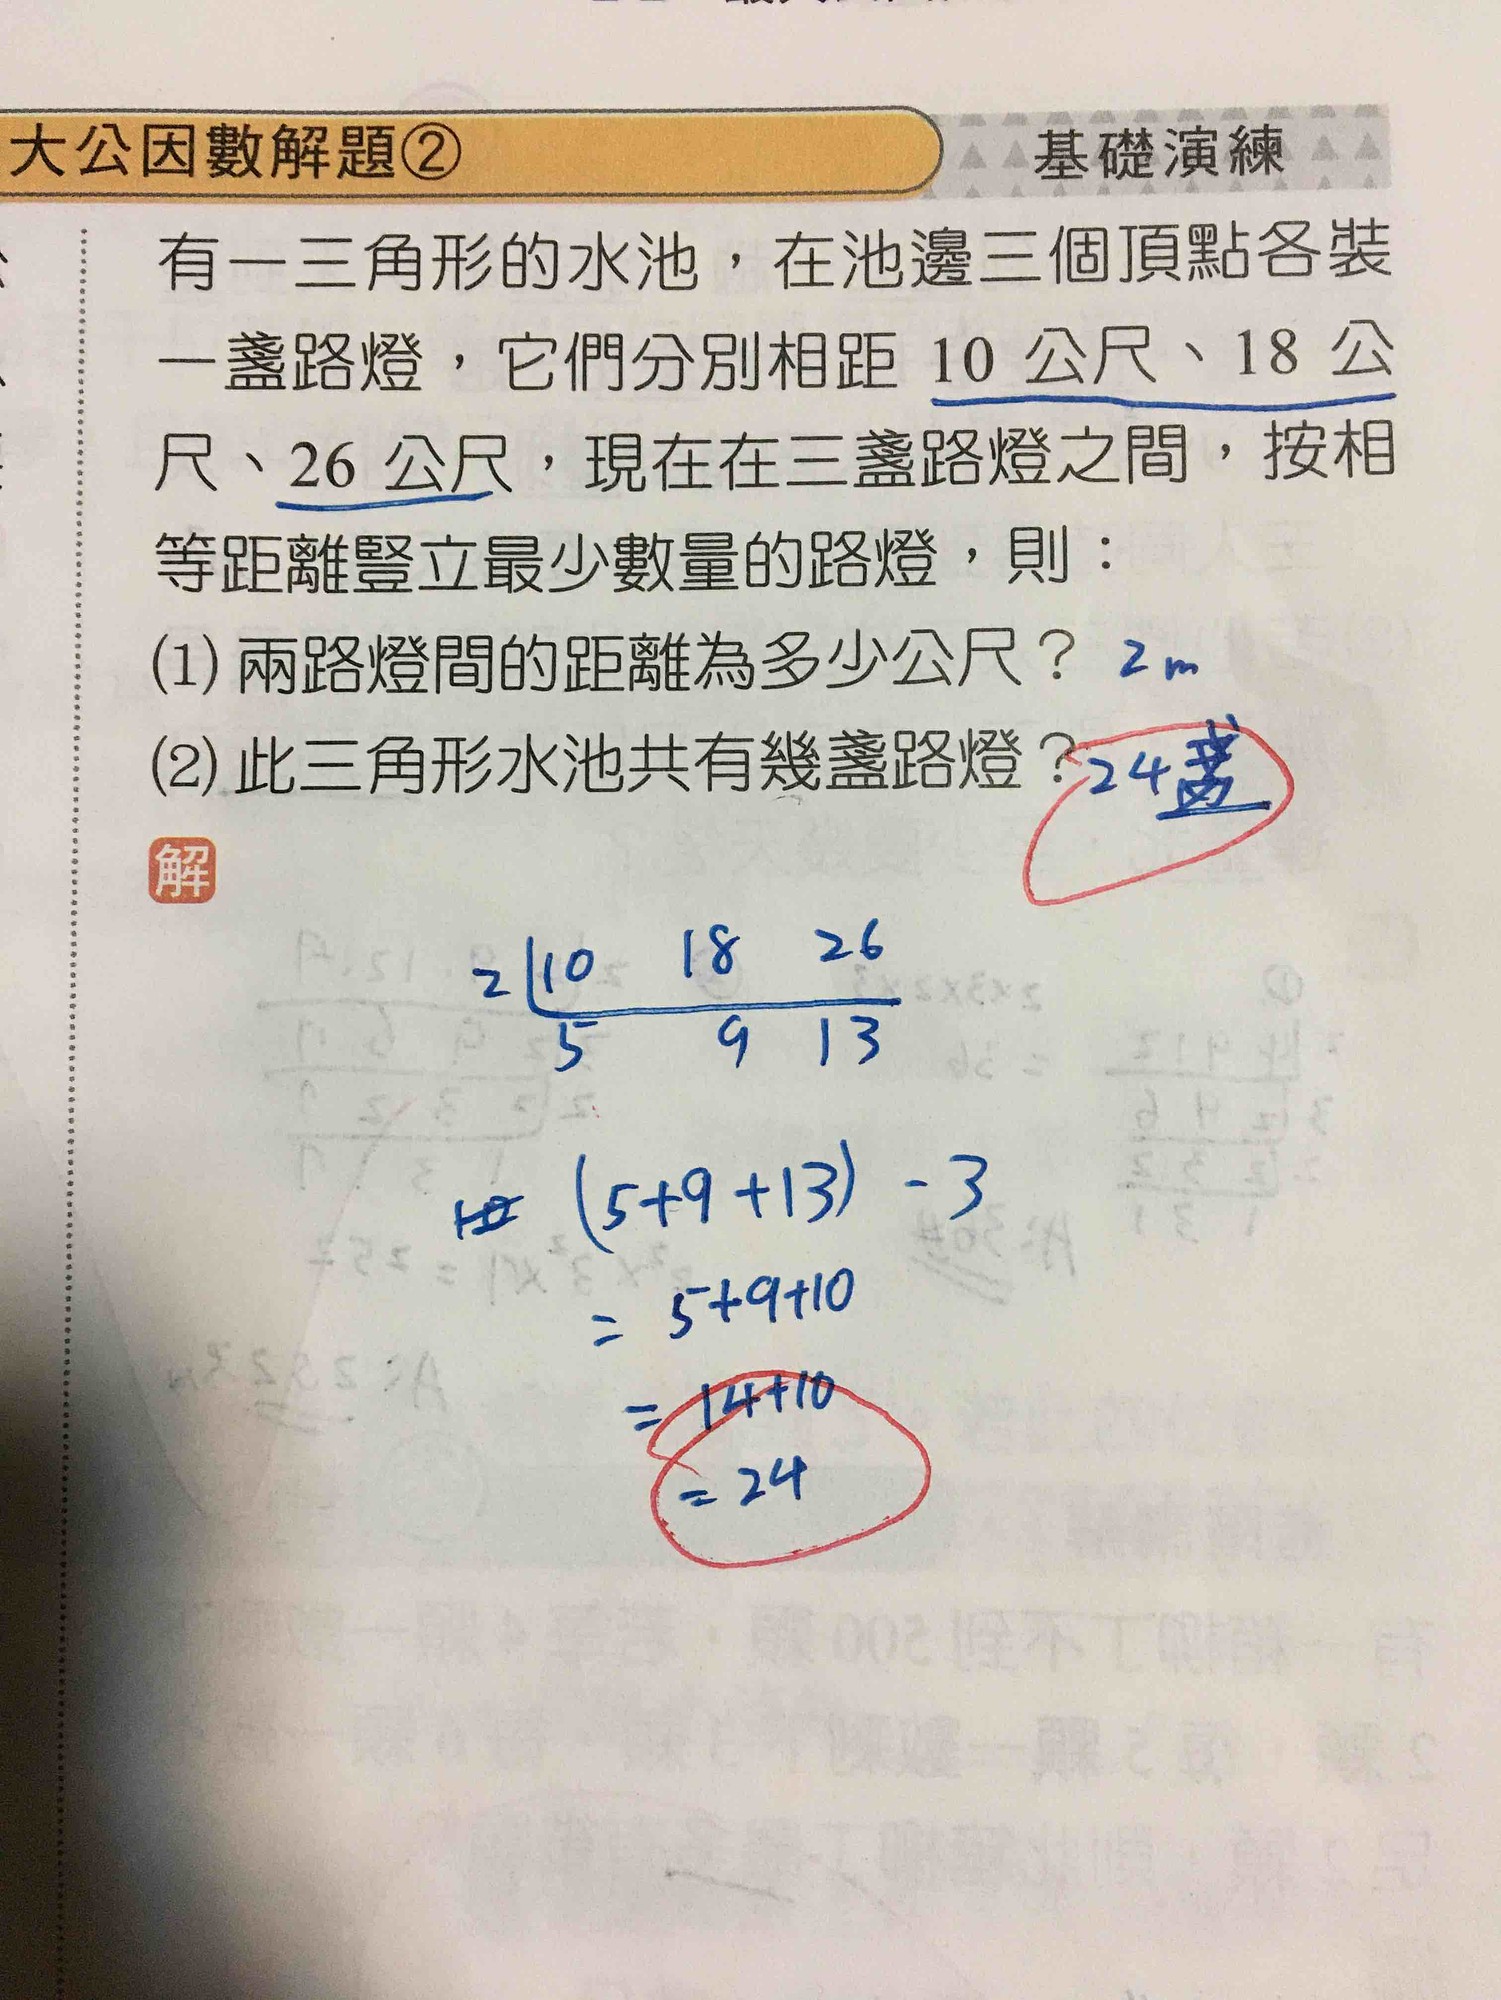 大公因數解題②
基礎演練
有一三角形的水池，在池邊三個頂點各裝
一盞路燈，它們分別相距 10 公尺、18 公
尺、26 公尺，現在在三盞路燈之間，按相
等距離豎立最少數量的路燈，則：
(1) 兩路燈間的距離為多少公尺？ 2m
(2) 此三角形水池共有幾盞路燈？ 24盞
解
2 10 18 26
5 9 13
(5+9+13) - 3
= 5+9+10
= 14+10
= 24